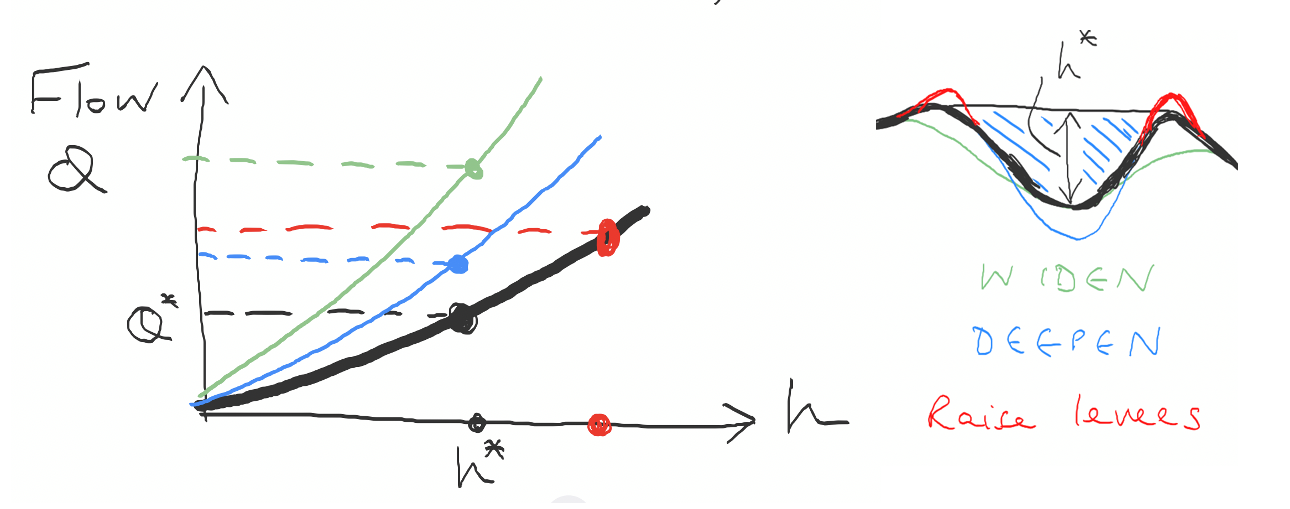 Flow
Q
Q*
h*
h
h*
WIDEN
DEEPEN
Raise levees